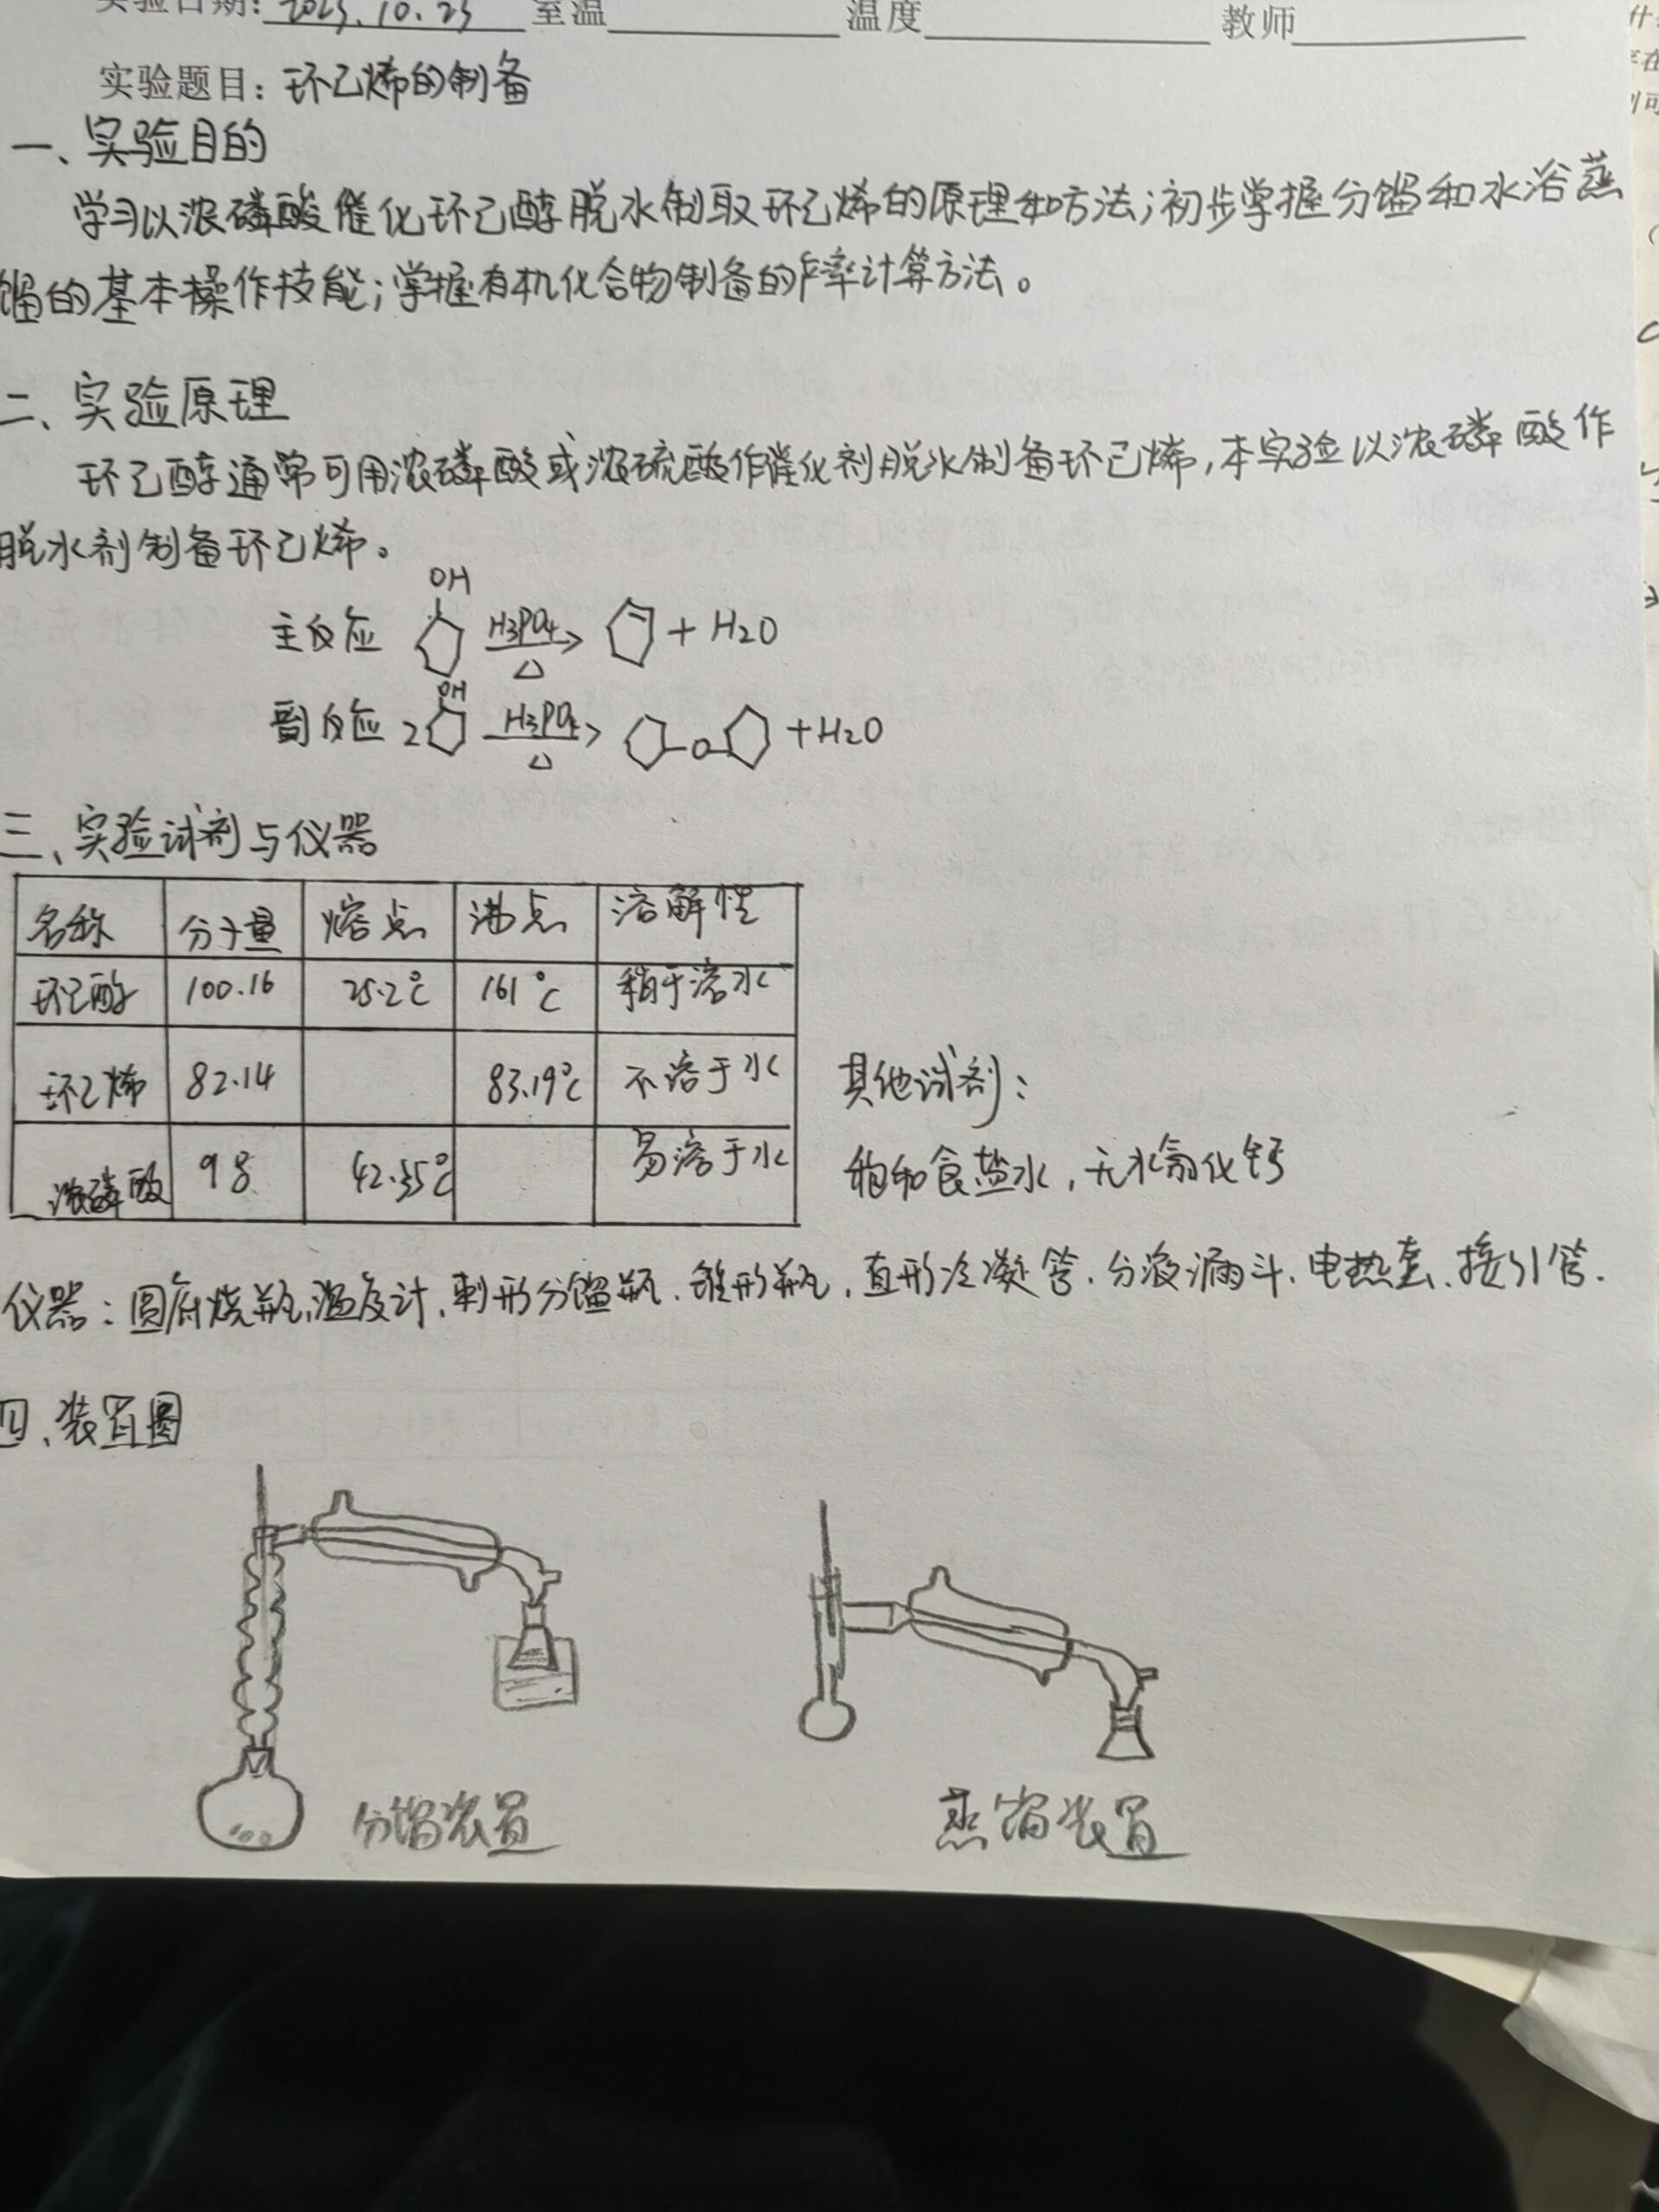 实验日期: 2025.10.23 室温 温度 教师
实验题目: 环乙烯的制备
一、实验目的
学习以浓磷酸催化环己醇脱水制取环乙烯的原理和方法;初步学掌握分馏和水浴蒸
馏的基本操作技能;掌握有机化合物制备的产率计算方法。
二、实验原理
环己醇通常可用浓磷酸或浓硫酸作催化剂脱水制备环己烯,本实验以浓磷酸作
脱水剂制备环乙烯。
OH
主反应 H3PO4 △ + H2O
OH
副反应 2 H3PO4 △ O + H2O
三、实验试剂与仪器
名称 分子量 熔点 沸点 溶解性
环己醇 100.16 25.2℃ 161℃ 稍于溶水
环乙烯 82.14 83.19℃ 不溶于水
浓磷酸 98 42.35℃ 易溶于水
其他试剂:
饱和食盐水,无水氯化钙
仪器:圆底烧瓶,温度计,刺形分馏瓶.锥形瓶,直形冷凝管.分液漏斗.电热套.接引管.
四、装置图
分馏装置
蒸馏装置